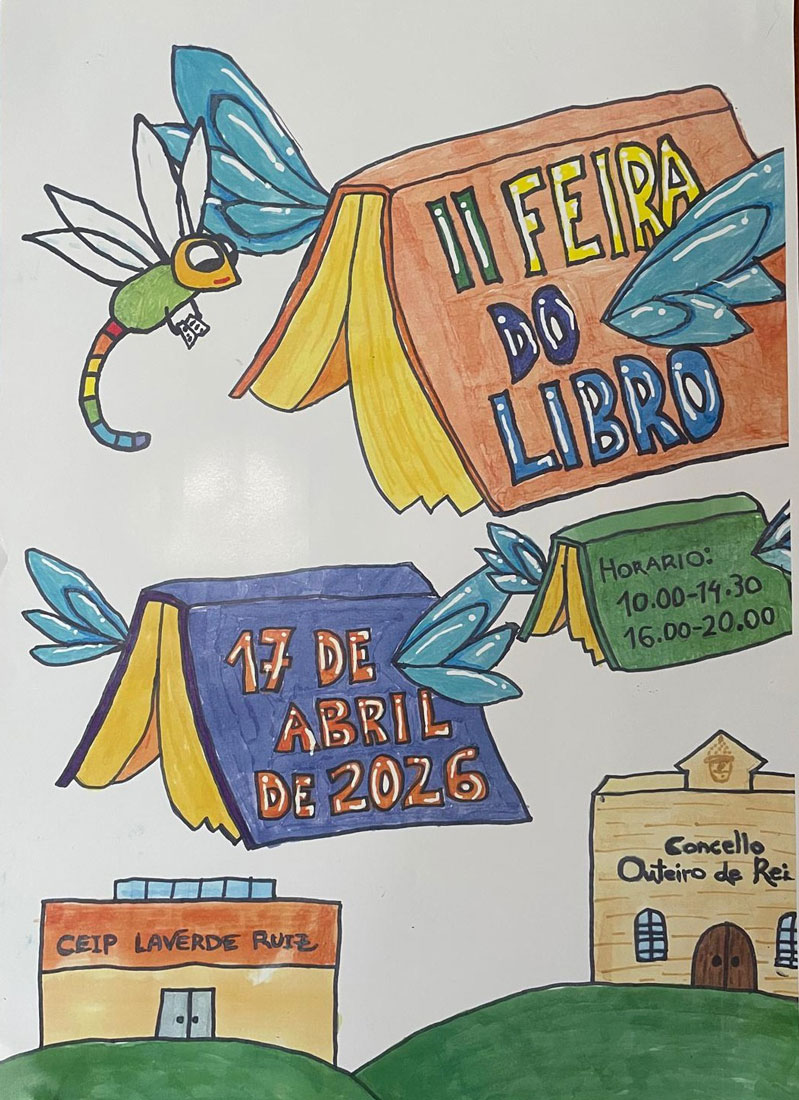 II FEIRA
DO
LIBRO
HORARIO:
10.00-14.30
16.00-20.00
17 DE
ABRIL
DE 2026
Concello
Outeiro de Rei
CEIP LAVERDE RUIZ